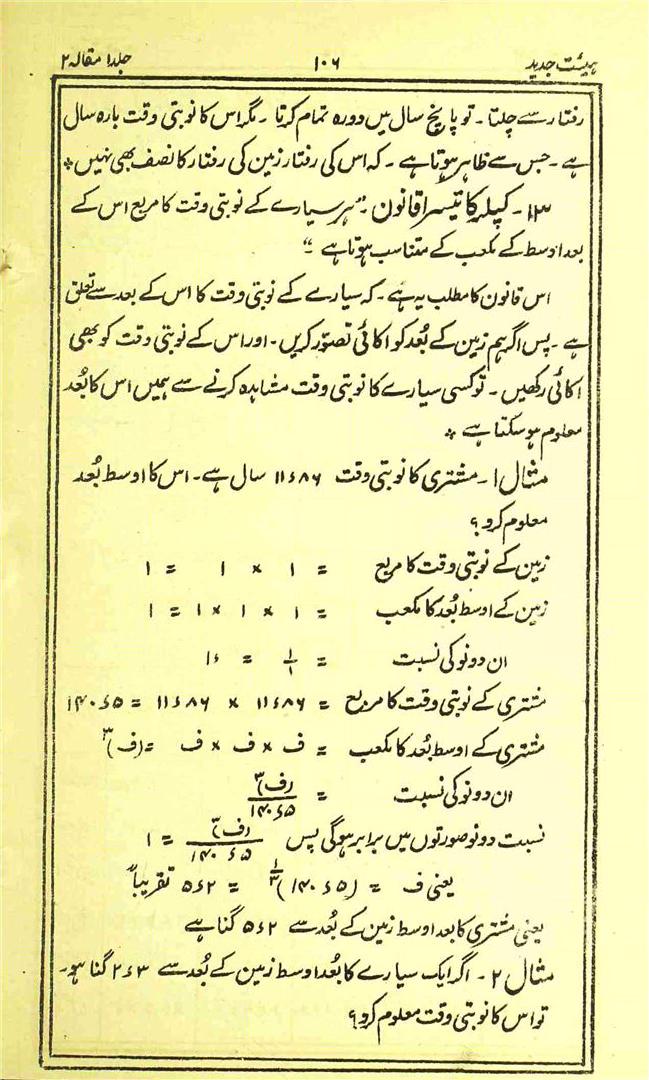 ہیئت جدید ۱۰۶ جلد ۱ مقالہ ۲
رفتار سے چلتا۔ تو پانچ سال میں دورہ تمام کرتا۔ مگر اس کا نوبتی وقت بارہ سال
ہے۔ جس سے ظاہر ہوتا ہے۔ کہ اس کی رفتار زمین کی رفتار کا نصف بھی نہیں *
۱۳۔ کپلر کا تیسرا قانون۔ "ہر سیارے کے نوبتی وقت کا مربع اس کے
بعد اوسط کے مکعب کے متناسب ہوتا ہے۔"
اس قانون کا مطلب یہ ہے۔ کہ سیارے کے نوبتی وقت کا اس کے بعد سے تعلق
ہے۔ پس اگر ہم زمین کے بُعد کو اکائی تصوّر کریں۔ اور اس کے نوبتی وقت کو بھی
اکائی رکھیں۔ تو کسی سیارے کا نوبتی وقت مشاہدہ کرنے سے ہمیں اس کا بُعد
معلوم ہو سکتا ہے *
مثال ۱۔ مشتری کا نوبتی وقت ۱۱ء۸۶ سال ہے۔ اس کا اوسط بُعد
معلوم کرو؟
زمین کے نوبتی وقت کا مربع = ۱ × ۱ = ۱
زمین کے اوسط بُعد کا مکعب = ۱ × ۱ × ۱ = ۱
ان دونو کی نسبت = ۱/۱ = ۱ء
مشتری کے نوبتی وقت کا مربع = ۱۱ء۸۶ × ۱۱ء۸۶ = ۱۴۰ء۵
مشتری کے اوسط بُعد کا مکعب = ف × ف × ف = (ف)³
ان دونو کی نسبت = (ف)³/۱۴۰ء۵
نسبت دونو صورتوں میں برابر ہوگی پس (ف)³/۱۴۰ء۵ = ۱
یعنی ف = (۱۴۰ء۵)^۱/۳ = ۵ء۲ تقریباً
یعنی مشتری کا بعد اوسط زمین کے بُعد سے ۵ء۲ گنا ہے
مثال ۲۔ اگر ایک سیارے کا بُعد اوسط زمین کے بُعد سے ۲ء۳ گنا ہو۔
تو اس کا نوبتی وقت معلوم کرو؟